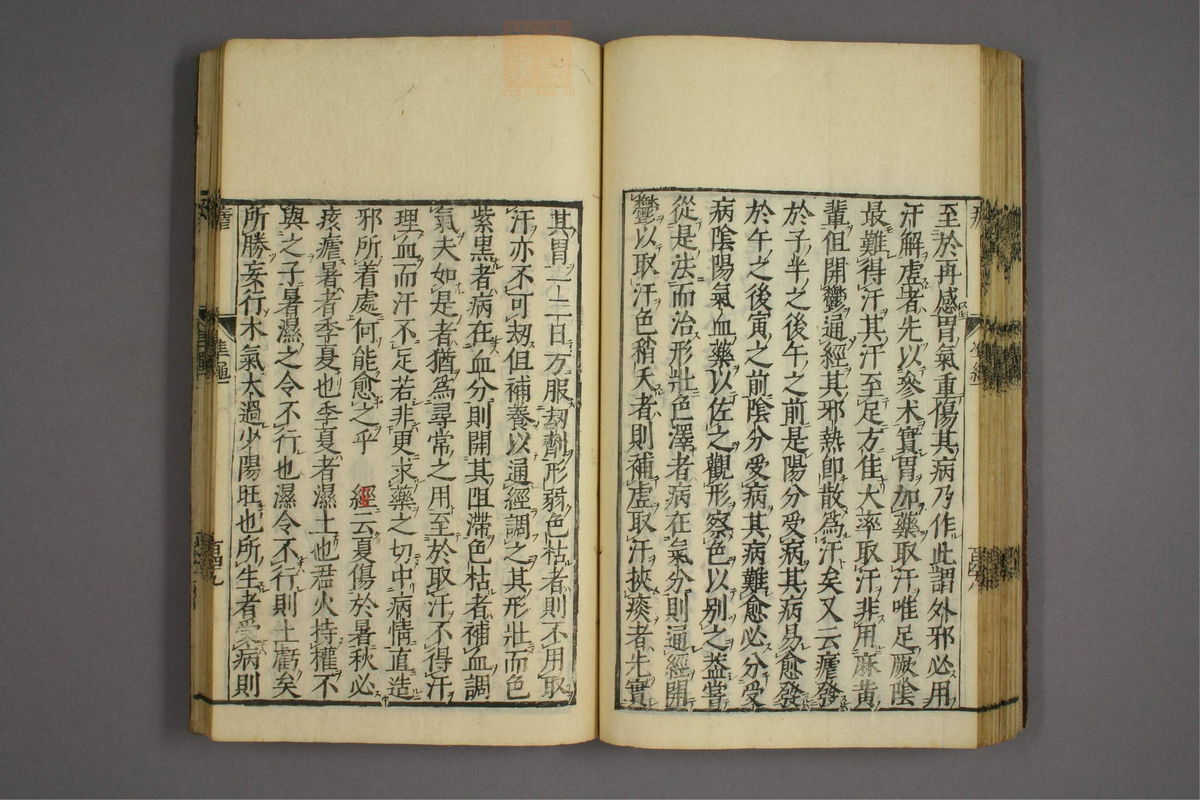 至於再感胃氣重傷其病乃作此謂外邪必用
汗解虛者先以參术實胃加藥取汗唯足厥陰
最難得汗其汗至足方佳大率取汗非用麻黃
輩但開鬱通經其邪熱即散為汗矣又云瘧發
於子半之後午之前是陽分受病其病易愈發
於午之後寅之前陰分受病其病難愈必分受
病陰陽氣血藥以佐之觀形察色以別之葢嘗
從是法而治形壯色澤者病在氣分則通經開
鬱以取汗色稍夭者則補虛取汗挾痰者先實
其胃一二日方服刼劑形弱色枯者則不用取
汗亦不可刼但補養以通經調之其形壯而色
紫黑者病在血分則開其阻滯色枯者補血調
氣夫如是者猶為尋常之用至於取汗不得汗
理血而汗不足若非更求藥之切中病情直造
邪所着處何能愈之乎 經云夏傷於暑秋必
痎瘧暑者季夏也季夏者濕土也君火持權不
與之子暑濕之令不行也濕令不行則土虧矣
所勝妄行木氣太過少陽旺也所生者受病則